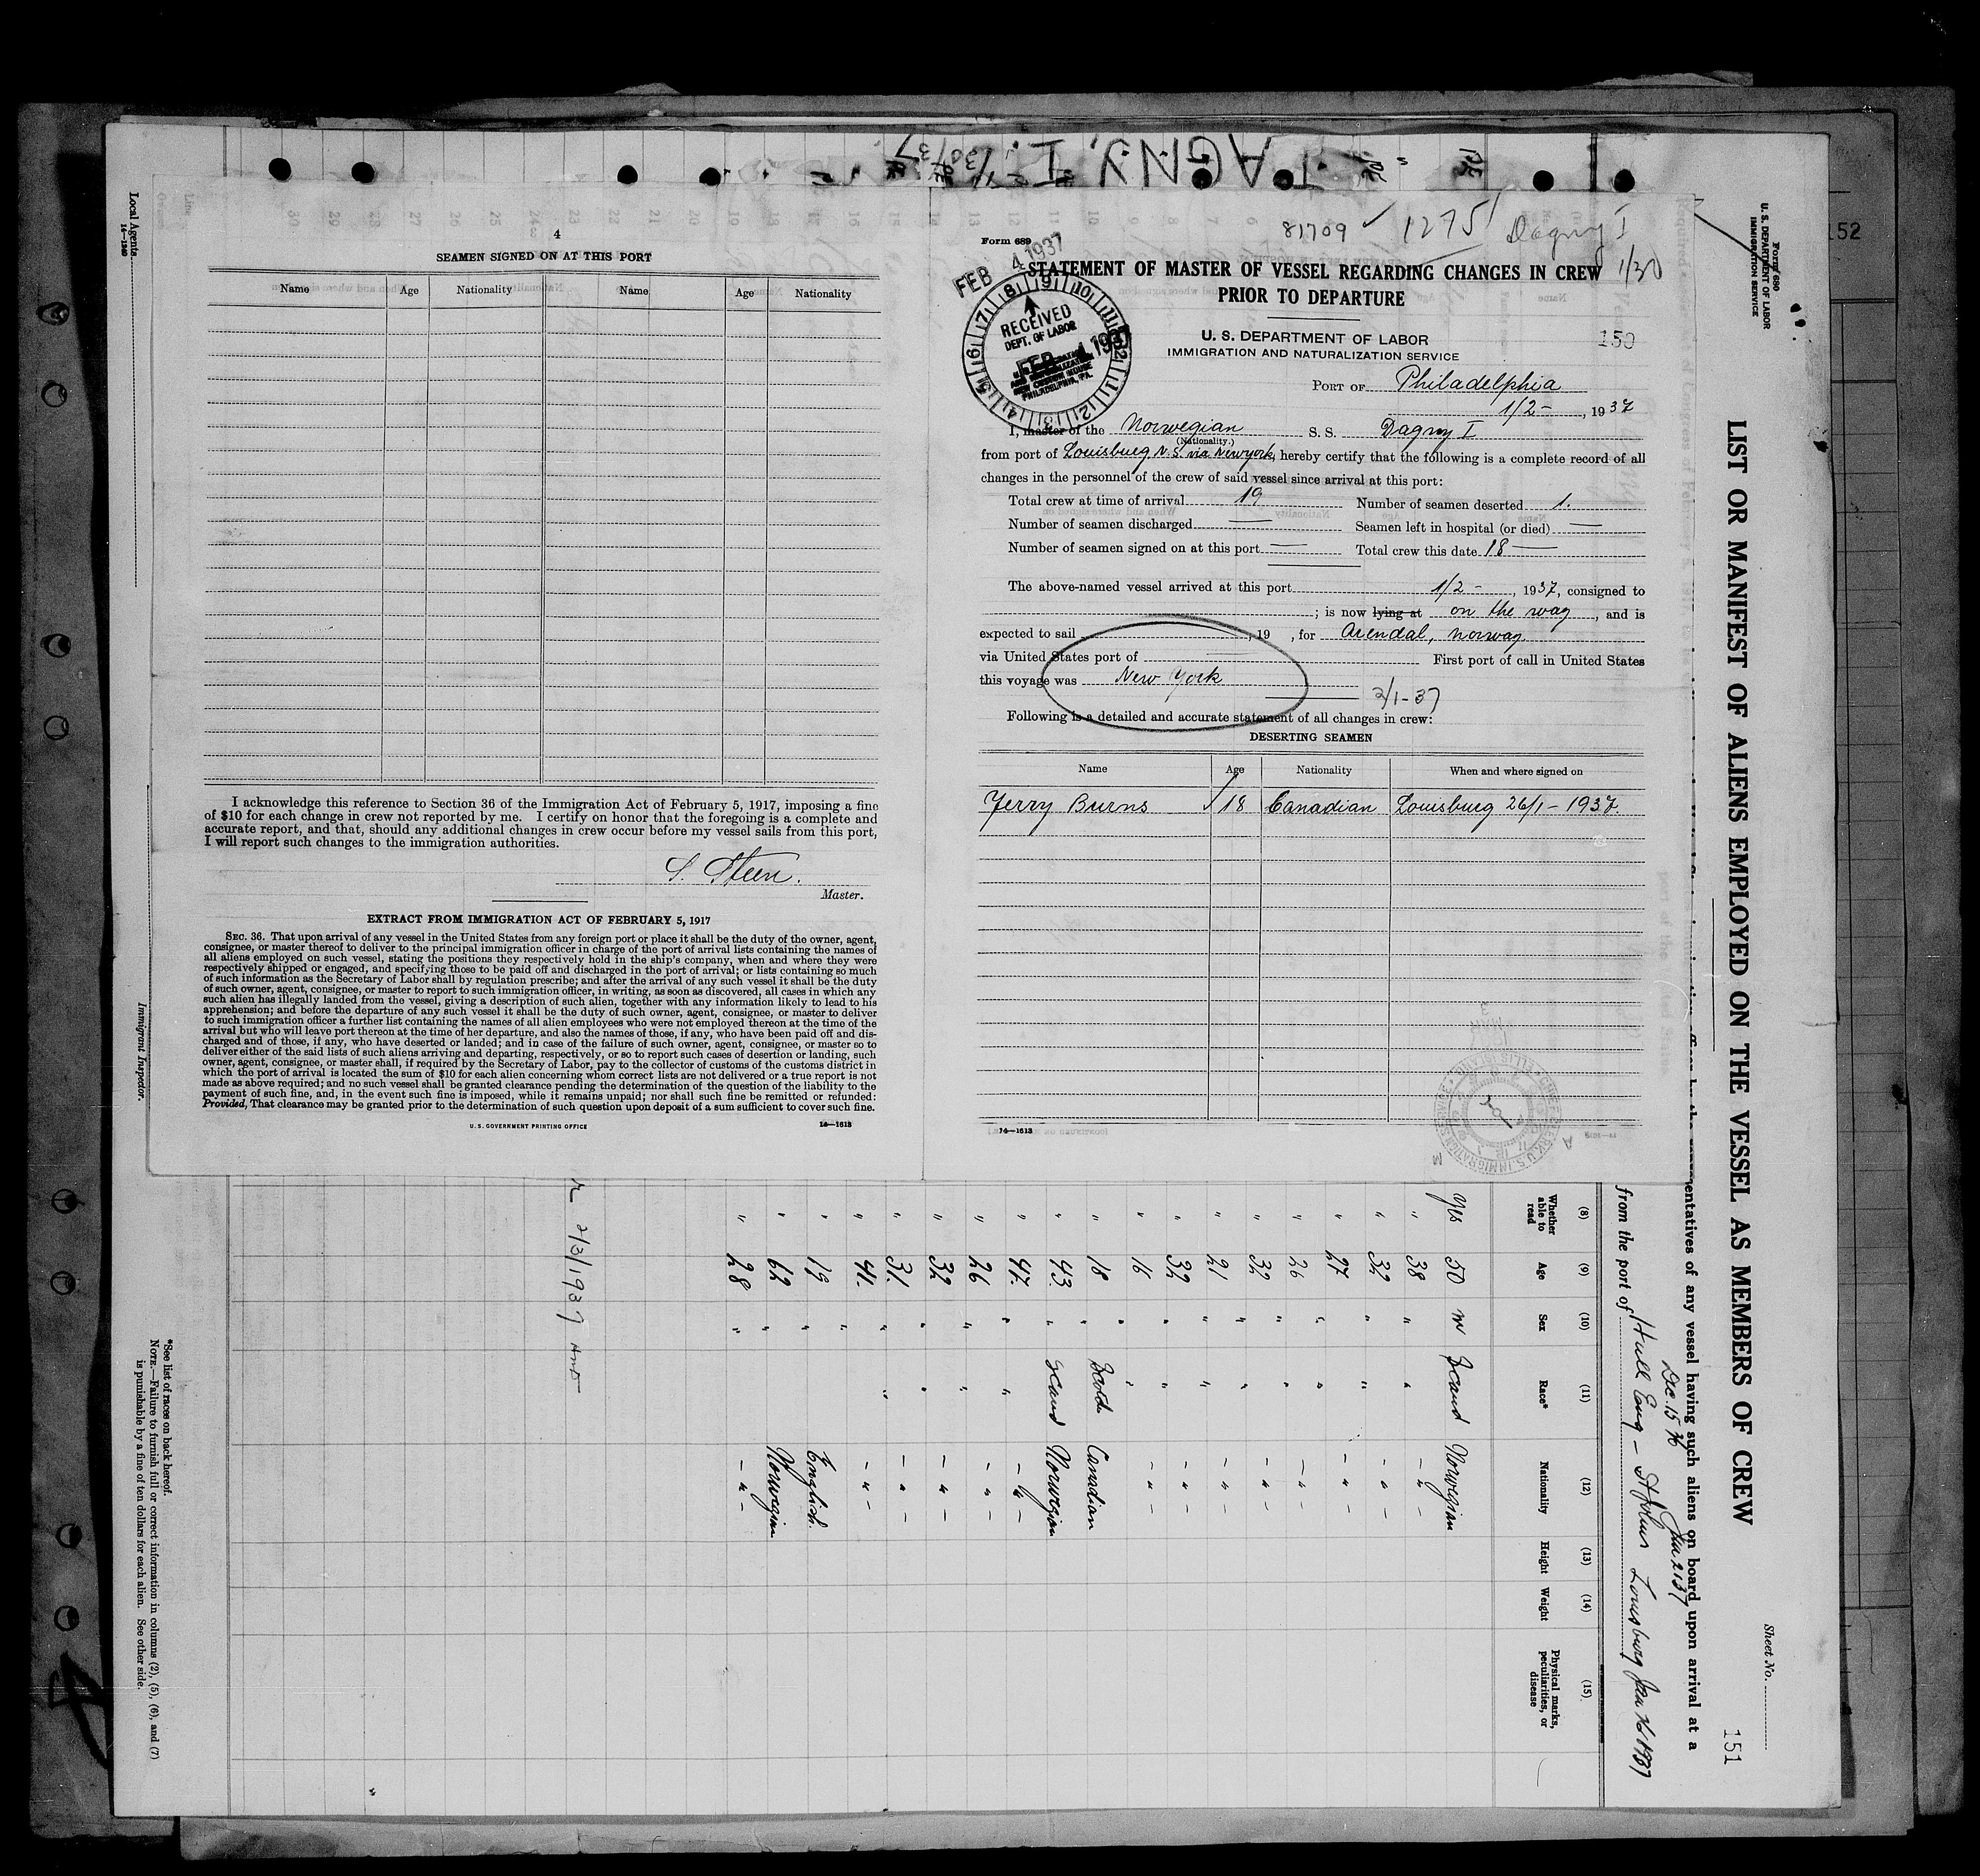 4
SEAMEN SIGNED ON AT THIS PORT
Name Age Nationality Name Age Nationality
I acknowledge this reference to Section 36 of the Immigration Act of February 5, 1917, imposing a fine
of $10 for each change in crew not reported by me. I certify on honor that the foregoing is a complete and
accurate report, and that, should any additional changes in crew occur before my vessel sails from this port,
I will report such changes to the immigration authorities.
S. Steen.
Master.
EXTRACT FROM IMMIGRATION ACT OF FEBRUARY 5, 1917
SEC. 36. That upon arrival of any vessel in the United States from any foreign port or place it shall be the duty of the owner, agent,
consignee, or master thereof to deliver to the principal immigration officer in charge of the port of arrival lists containing the names of
all aliens employed on such vessel, stating the positions they respectively hold in the ship's company, when and where they were
respectively shipped or engaged, and specifying those to be paid off and discharged in the port of arrival; or lists containing so much
of such information as the Secretary of Labor shall by regulation prescribe; and after the arrival of any such vessel it shall be the duty
of such owner, agent, consignee, or master to report to such immigration officer, in writing, as soon as discovered, all cases in which any
such alien has illegally landed from the vessel, giving a description of such alien, together with any information likely to lead to his
apprehension; and before the departure of any such vessel it shall be the duty of such owner, agent, consignee, or master to deliver
to such immigration officer a further list containing the names of all alien employees who were not employed thereon at the time of the
arrival but who will leave port thereon at the time of her departure, and also the names of those, if any, who have been paid off and dis-
charged and of those, if any, who have deserted or landed; and in case of the failure of such owner, agent, consignee, or master so to
deliver either of the said lists of such aliens arriving and departing, respectively, or so to report such cases of desertion or landing, such
owner, agent, consignee, or master shall, if required by the Secretary of Labor, pay to the collector of customs of the customs district in
which the port of arrival is located the sum of $10 for each alien concerning whom correct lists are not delivered or a true report is not
made as above required; and no such vessel shall be granted clearance pending the determination of the question of the liability to the
payment of such fine, and, in the event such fine is imposed, while it remains unpaid; nor shall such fine be remitted or refunded:
Provided, That clearance may be granted prior to the determination of such question upon deposit of a sum sufficient to cover such fine.
U. S. GOVERNMENT PRINTING OFFICE 14—1613
81709 ✓ 1275 Dagny I
1/30
Form 689
FEB 4 1937
STATEMENT OF MASTER OF VESSEL REGARDING CHANGES IN CREW
PRIOR TO DEPARTURE
RECEIVED
DEPT. OF LABOR
PHILADELPHIA, PA.
U. S. DEPARTMENT OF LABOR
IMMIGRATION AND NATURALIZATION SERVICE
150
PORT OF Philadelphia
1/2-, 1937
I, master of the Norwegian S. S. Dagny I
(Nationality.)
from port of Louisburg N.S. via Newyork, hereby certify that the following is a complete record of all
changes in the personnel of the crew of said vessel since arrival at this port:
Total crew at time of arrival 19 Number of seamen deserted 1.
Number of seamen discharged — Seamen left in hospital (or died) —
Number of seamen signed on at this port — Total crew this date 18 —
The above-named vessel arrived at this port 1/2-, 1937, consigned to
; is now lying at on the way, and is
expected to sail , 19 , for Arendal, Norway.
via United States port of First port of call in United States
this voyage was New York
3/1-37
Following is a detailed and accurate statement of all changes in crew:
DESERTING SEAMEN
Name Age Nationality When and where signed on
Jerry Burns ✓ 18 Canadian Louisburg 26/1-1937.
14—1613
Form 680
U. S. DEPARTMENT OF LABOR
IMMIGRATION SERVICE
152
LIST OR MANIFEST OF ALIENS EMPLOYED ON THE VESSEL AS MEMBERS OF CREW
Sheet No.
151
entatives of any vessel having such aliens on board upon arrival at a
Dec. 15 36
Jan 21 37
from the port of Hull Eng - St Johns Louisburg Jan 26 1937
(8) Whether able to read (9) Age (10) Sex (11) Race* (12) Nationality (13) Height (14) Weight (15) Physical marks, peculiarities, or disease
Yes 50 m Scand Norwegian
" 38 " " - " -
" 32 " " - " -
" 27 " " - " -
" 26 " " - " -
" 32 " " - " -
" 21 " " - " -
" 32 " " - " -
" 16 " " - " -
" 18 " Scotch Canadian
" 43 " Scand Norwegian
" 47 " " - " -
" 26 " " - " -
" 32 " " - " -
" 31 " " - " -
" 41 " - " -
" 19 " English
" 62 " Norwegian
" 28 " - " -
2/3/1937
Local Agents
14—1240
Immigrant Inspector.
*See list of races on back hereof.
NOTE.—Failure to furnish full or correct information in columns (2), (5), (6), and (7)
is punishable by a fine of ten dollars for each alien. See other side.
DAGNY I.